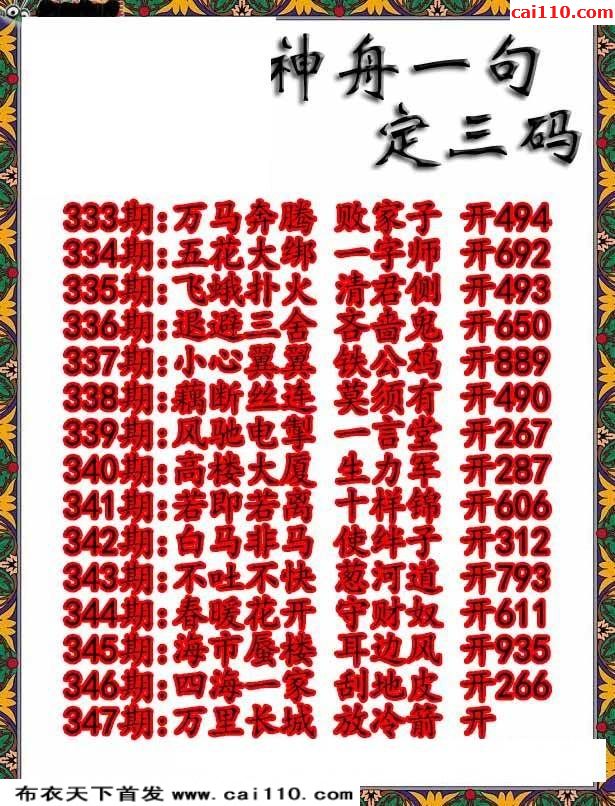 cai110.com
神舟一句
定三码
333期:万马奔腾 败家子 开494
334期:五花大绑 一字师 开692
335期:飞蛾扑火 清君侧 开493
336期:退避三舍 吝啬鬼 开650
337期:小心翼翼 铁公鸡 开889
338期:藕断丝连 莫须有 开490
339期:风驰电掣 一言堂 开267
340期:高楼大厦 生力军 开287
341期:若即若离 十样锦 开606
342期:白马非马 使绊子 开312
343期:不吐不快 葱河道 开793
344期:春暖花开 守财奴 开611
345期:海市蜃楼 耳边风 开935
346期:四海一家 刮地皮 开266
347期:万里长城 放冷箭 开
布衣天下首发 www.cai110.com